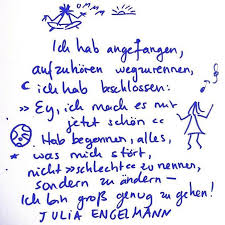 OMMM
Ich hab angefangen,
aufzuhören wegzurennen,
ich hab beschlossen:
»Ey, ich mach es mir
jetzt schön«
Hab begonnen, alles,
was mich stört,
nicht »schlecht« zu nennen,
sondern zu ändern –
Ich bin groß genug zu gehen!
JULIA ENGELMANN